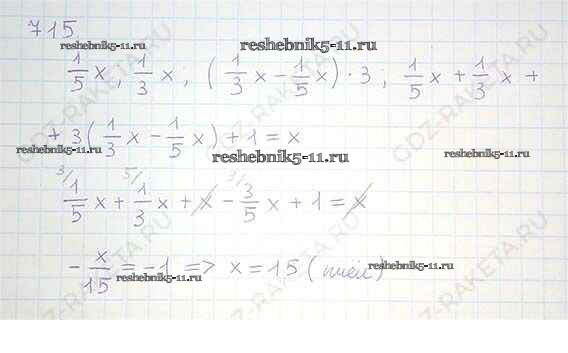 715
reshebnik5-11.ru reshebnik5-11.ru reshebnik5-11.ru
1/5 x; 1/3 x; (1/3 x - 1/5 x) · 3; 1/5 x + 1/3 x +
+ 3(1/3 x - 1/5 x) + 1 = x
reshebnik5-11.ru reshebnik5-11.ru reshebnik5-11.ru
3/ 1/5 x + 5/ 1/3 x + x - 3/ 3/5 x + 1 = x
- x/15 = -1 => x = 15 (пчёл)
reshebnik5-11.ru reshebnik5-11.ru
GDZ-RAKETA.RU GDZ-RAKETA.RU GDZ-RAKETA.RU